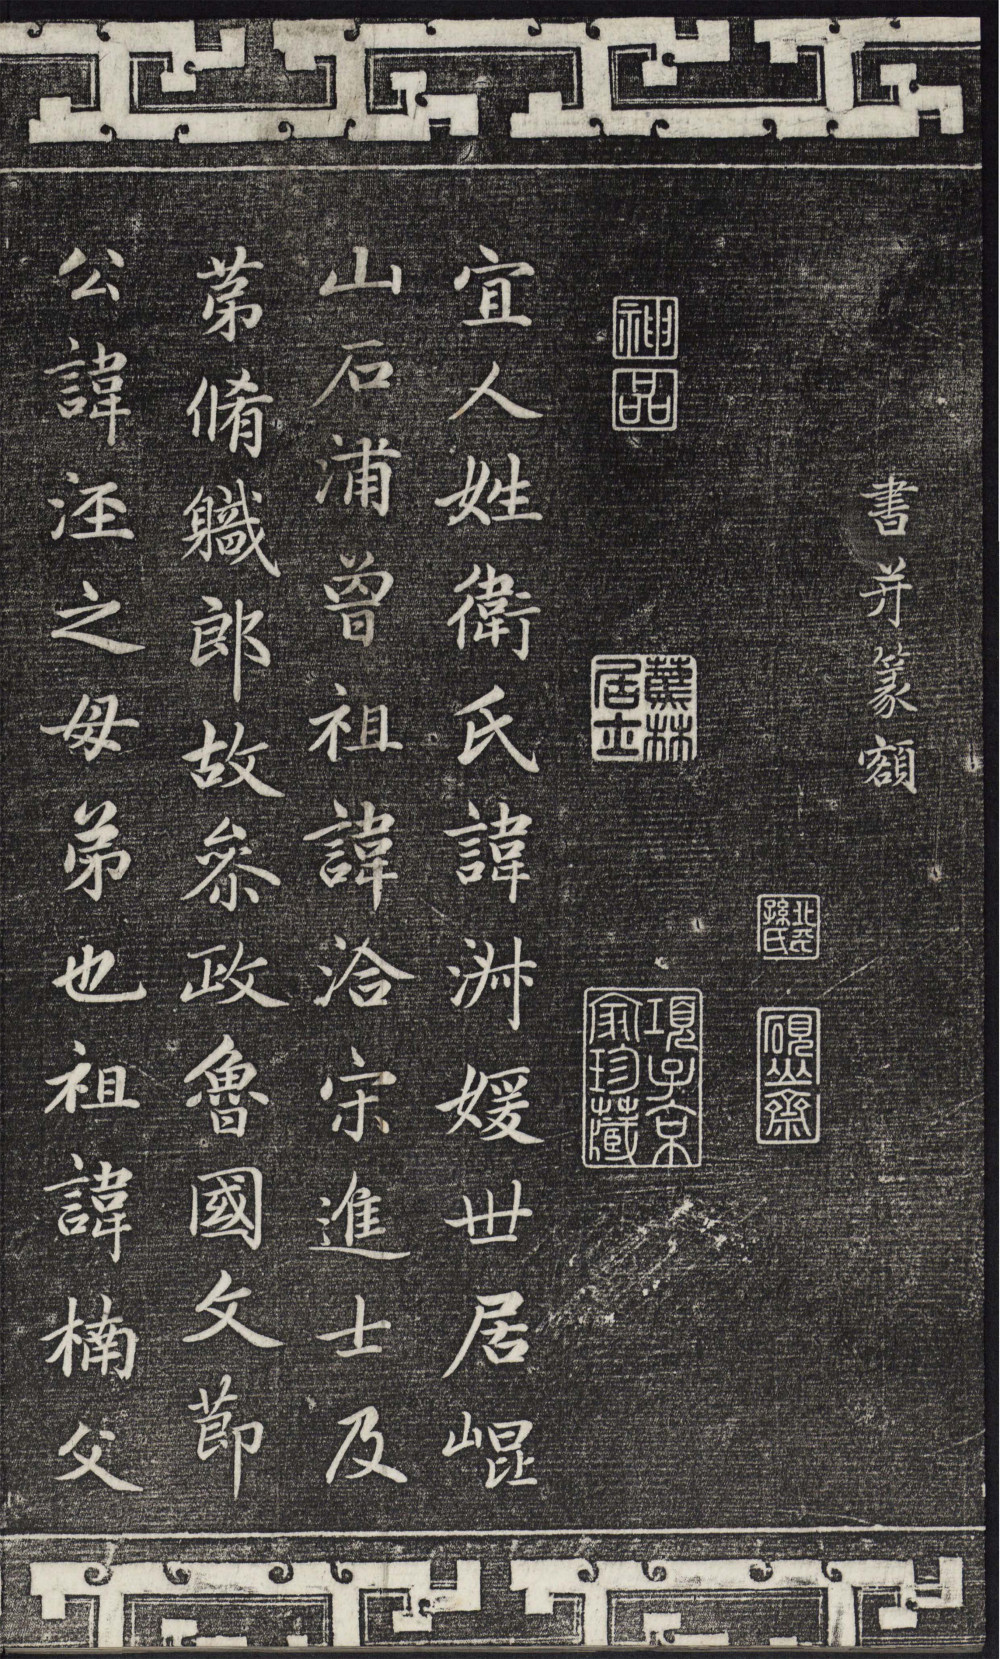 書并篆額
北平孫氏
硯山齋
神品
蕉林居士
項子京家珍藏
宜人姓衛氏諱淑媛世居崐
山石浦曾祖諱洽宋進士及
苐脩軄郎故叅政魯國文莭
公諱涇之母弟也祖諱楠父